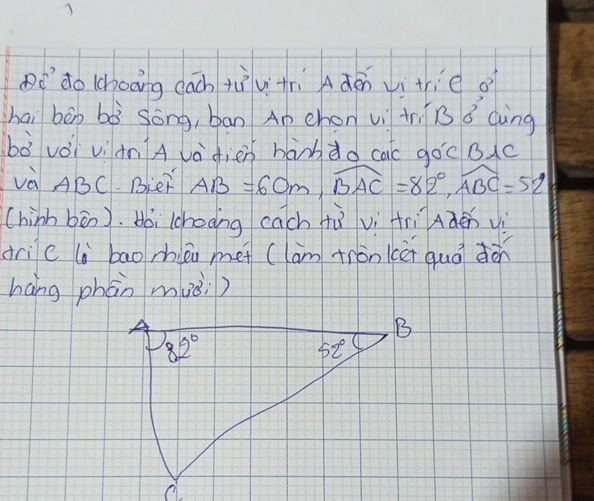 Để đo khoảng cách từ vị trí A đến vị trí C ở
hai bên bờ sông, bạn An chọn vị trí B ở cùng
bờ với vị trí A và tiến hành đo các góc BAC
và ABC. Biết AB = 60m, BAC = 82°, ABC = 52°
(hình bên). Hỏi khoảng cách từ vị trí A đến vị
trí C là bao nhiêu mét (làm tròn kết quả đến
hàng phần mười)
A B
82° 52°
C